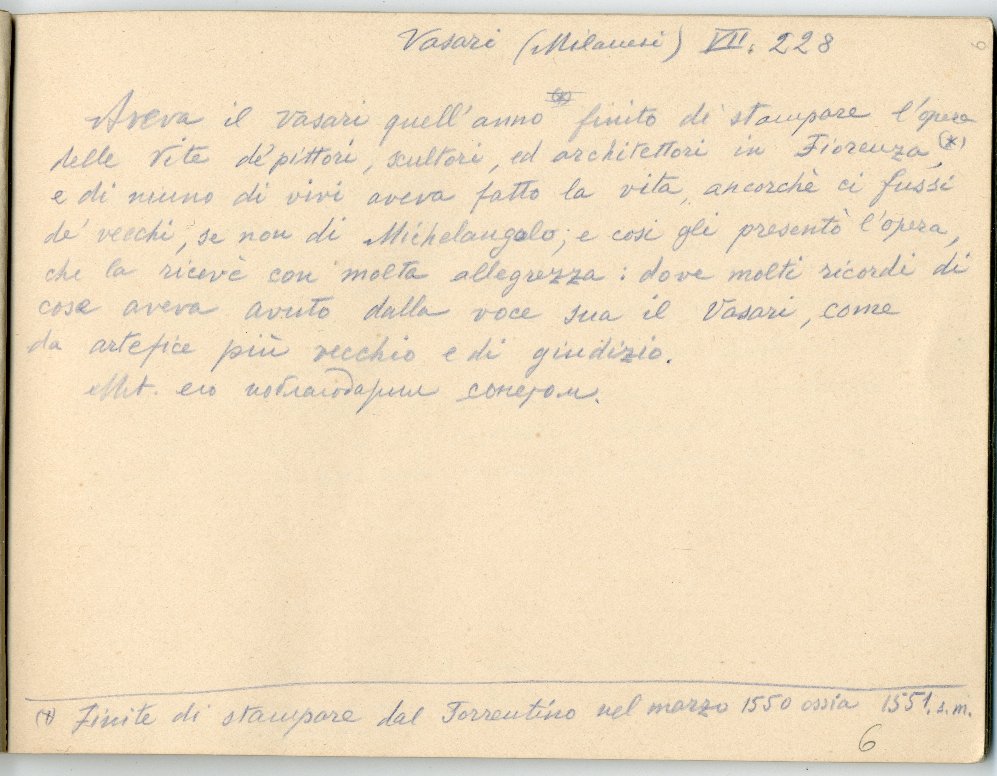 Vasari (Milanesi) VII. 228
Aveva il Vasari quell'anno finito di stampare l'opera
delle Vite de' pittori, scultori, ed architettori in Fiorenza, (*)
e di niuno di vivi aveva fatto la vita, ancorchè ci fussi
de' vecchi, se non di Michelangelo; e cosi gli presentò l'opera,
che la ricevè con molta allegrezza: dove molti ricordi di
cose aveva avuto dalla voce sua il Vasari, come
da artefice più vecchio e di giudizio.
М.А. его поблагодарил сонетом.
(*) Finite di stampare dal Torrentino nel marzo 1550 ossia 1551. s.m.
6